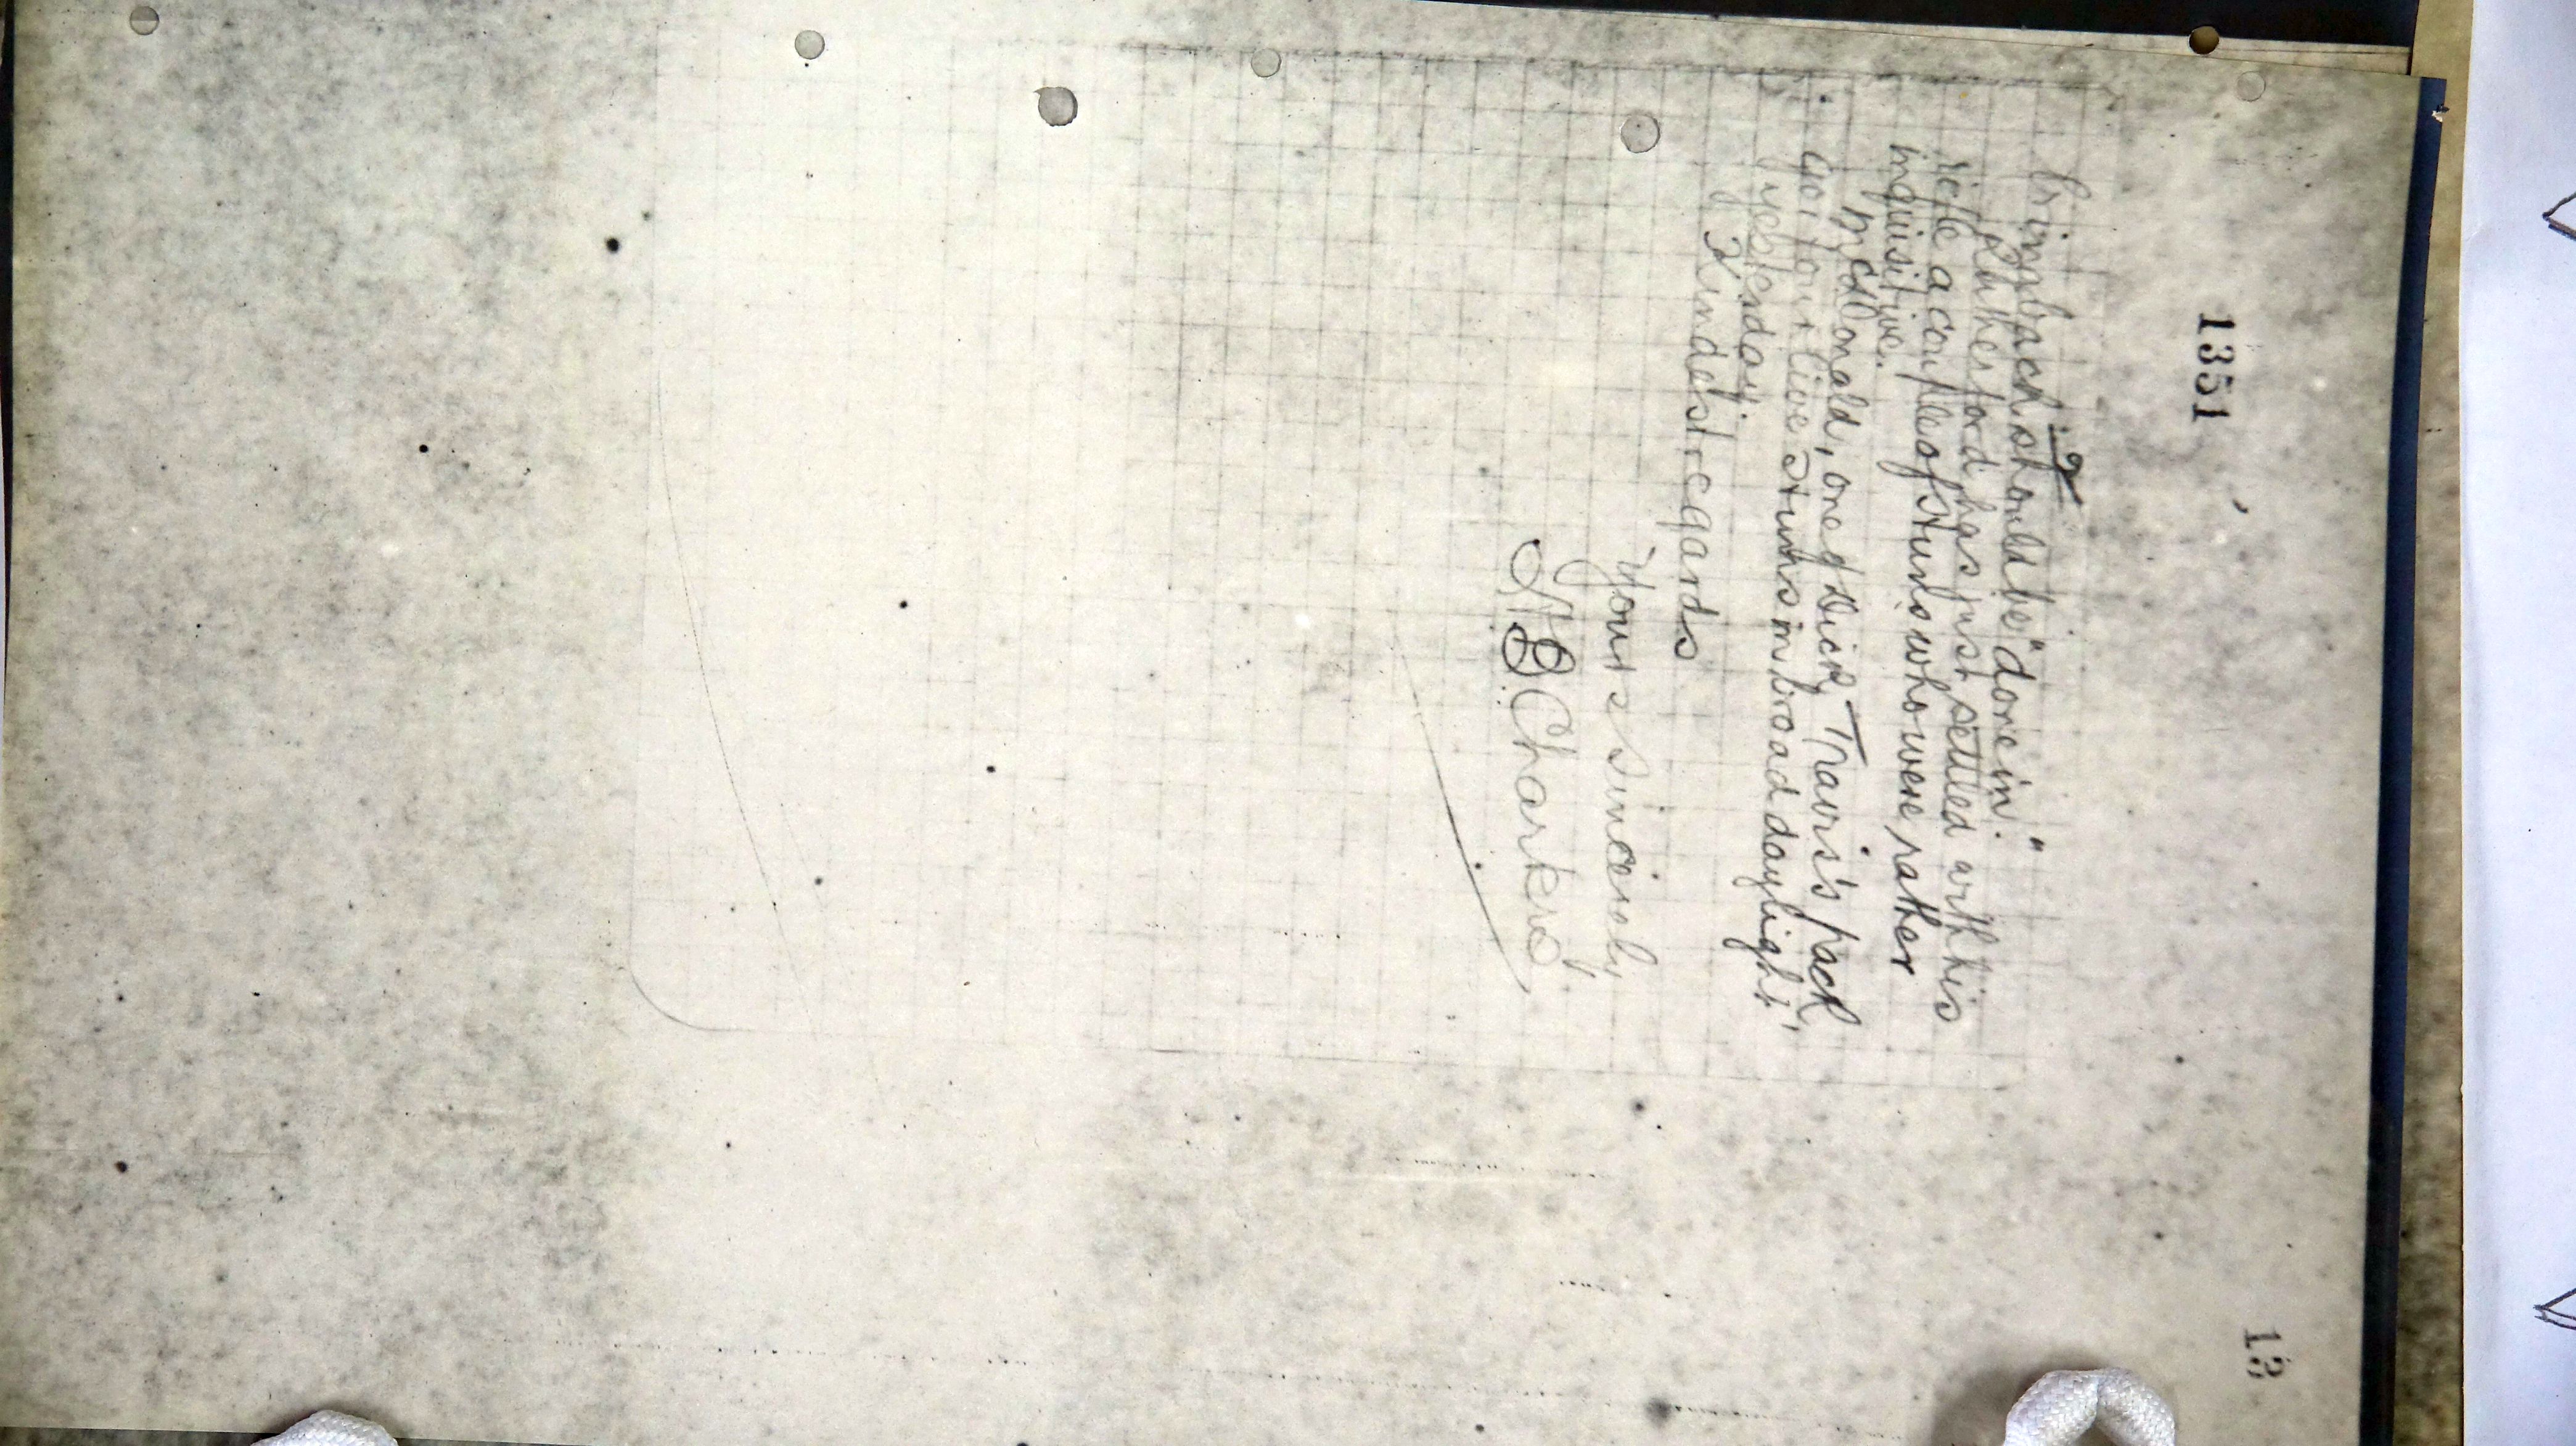 1351
2
Crimbach should be "done in."
Rutherford has just settled with his
rifle a couple of Stunks who were rather
inquisitive.
McDonald, one of Dick Travis's pack,
got four live Stunks in broad daylight
yesterday.
Kindest regards
Yours sincerely
A B Charters
13